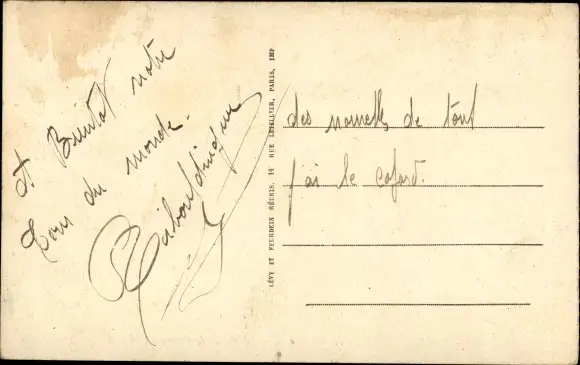 et Bientot notre
tour du monde.
Ribouldingue
LÉVY ET NEURDEIN RÉUNIS, 44 RUE LETELLIER, PARIS, IMP
des nouvelles de tout
j'ai le cafard.